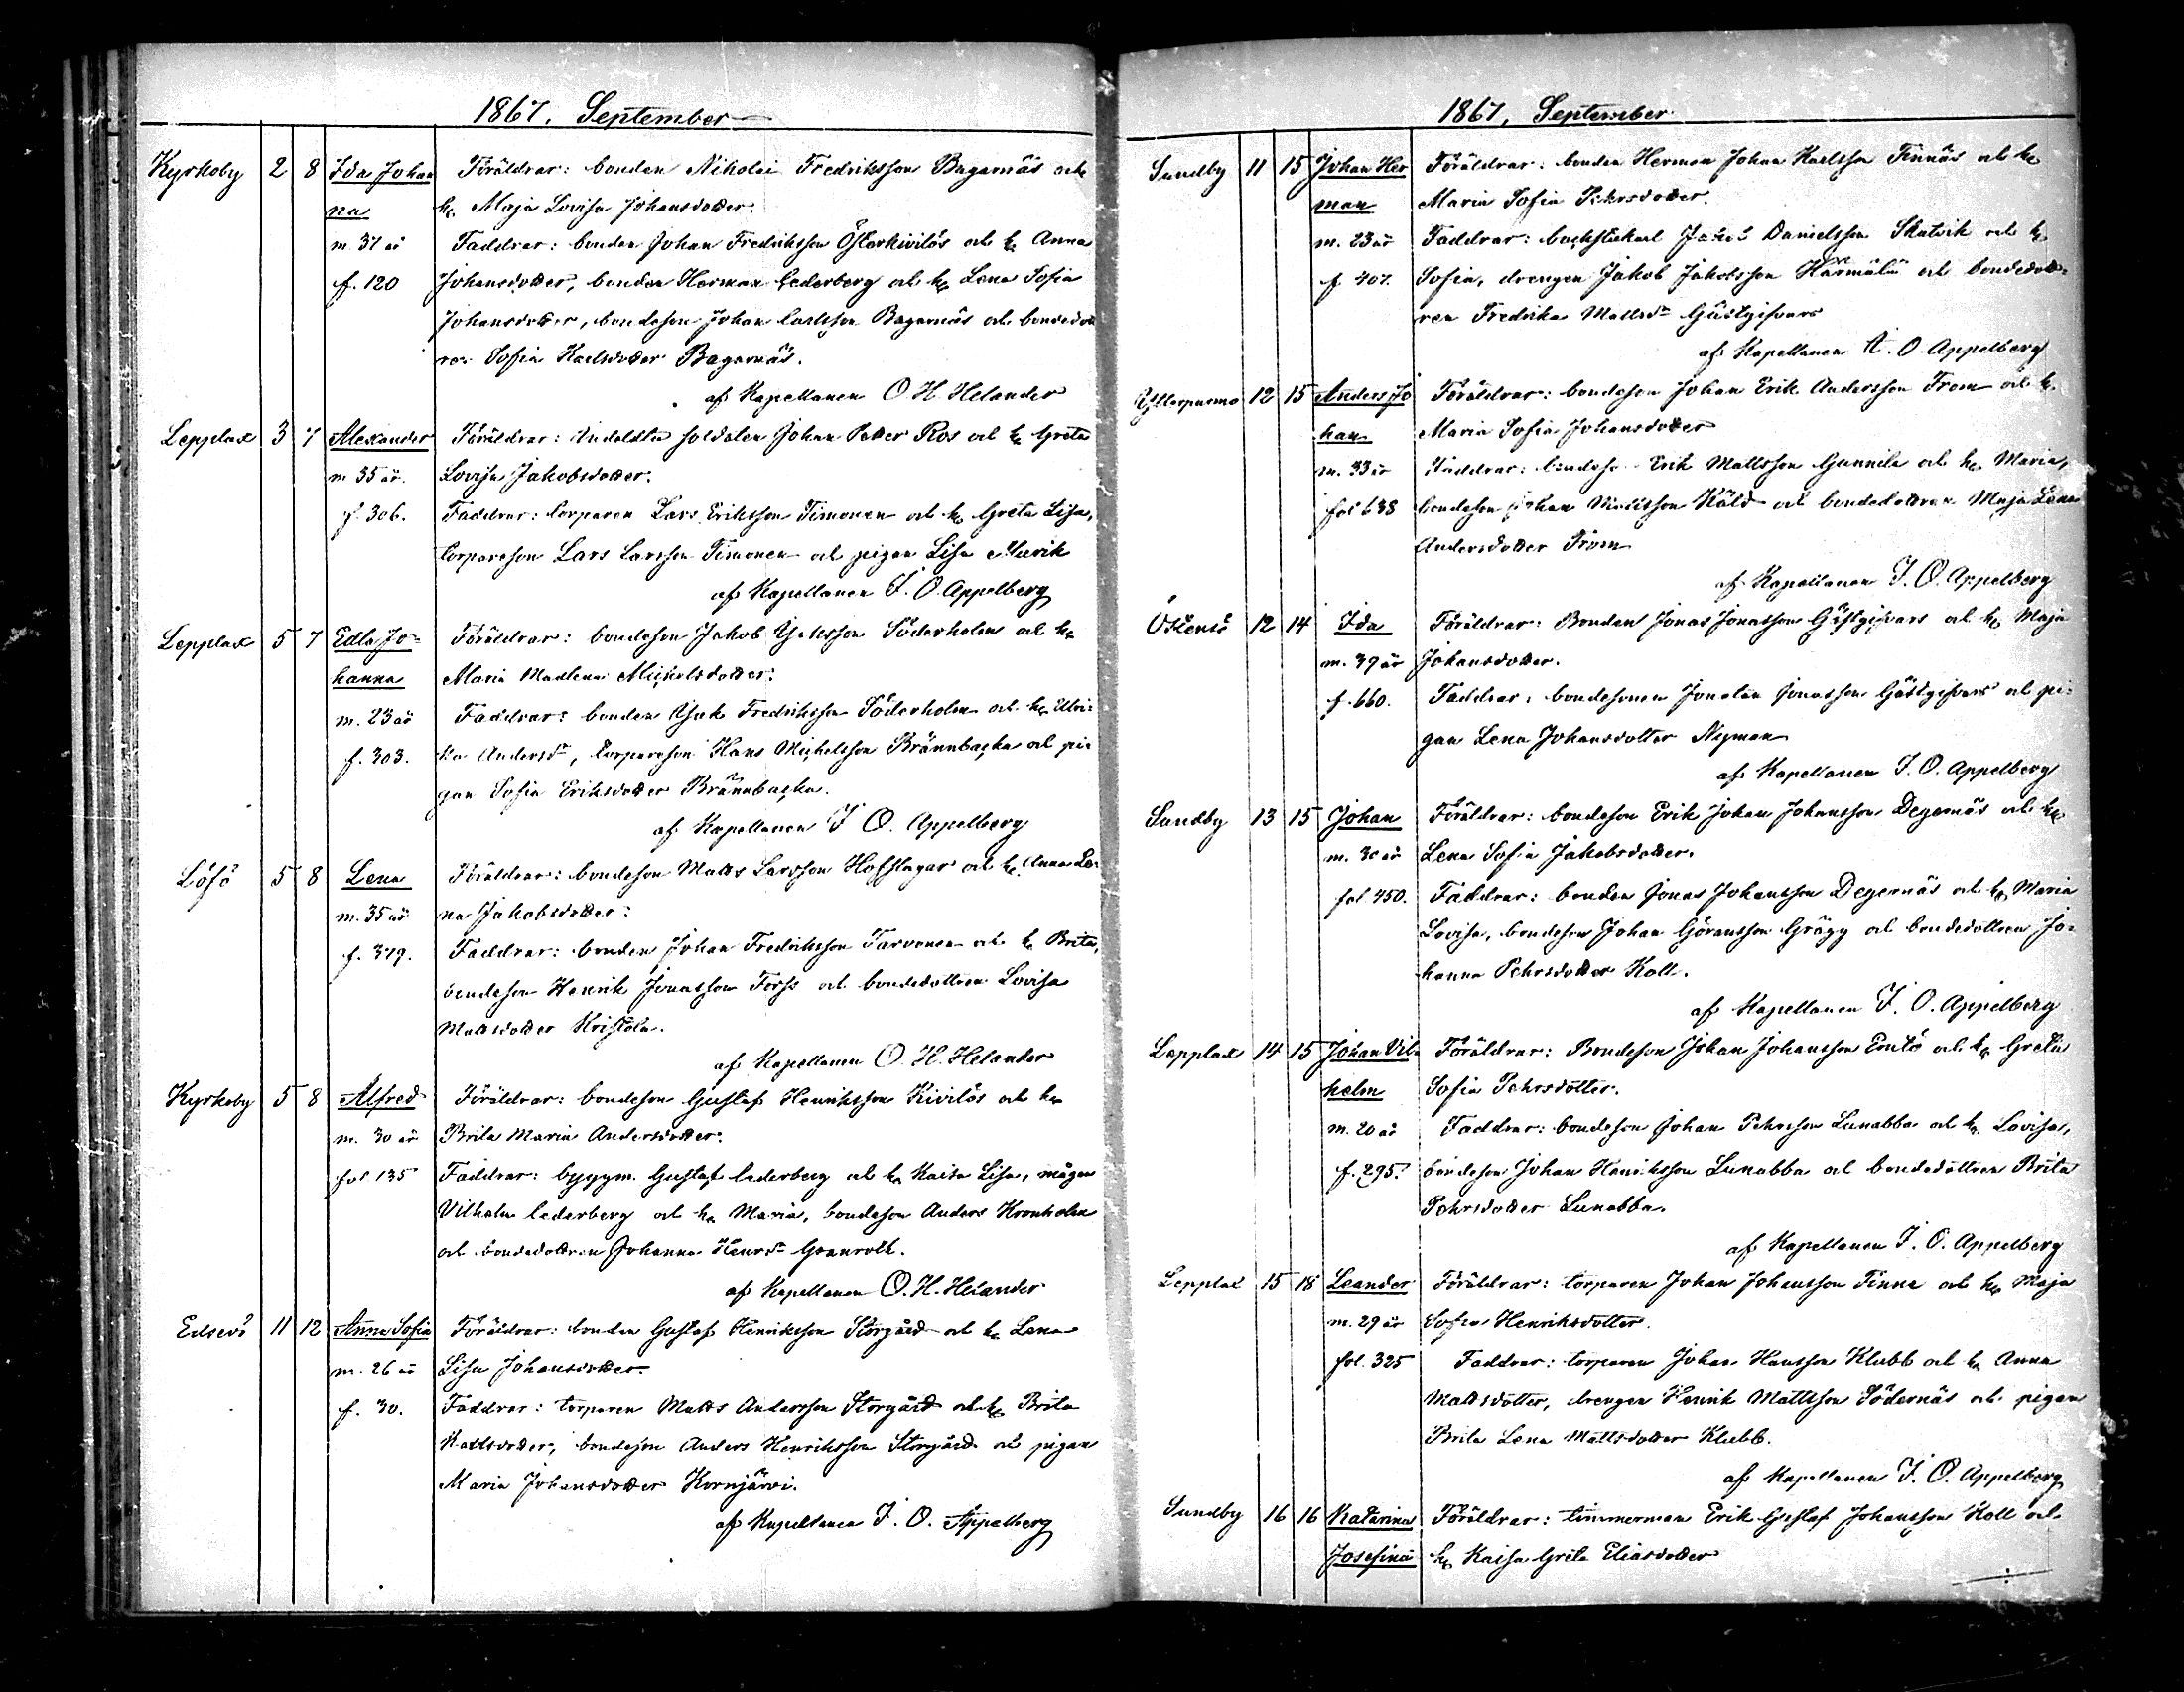 1867. September
Kyrkoby 2 8 Ida Johan Föräldrar: bonden Nikolai Fredriksson Bagarnäs och
na h. Maja Lovisa Johansdotter.
m 37 år Faddrar: bonden Johan Fredriksson Österkivilös och h. Anna
f. 120 Johansdotter, bonden Herman Cederberg och h. Lena Sofia
Johansdotter, bondeson Johan Carlsson Bagarnäs och bondedott
ren Sofia Karlsdotter Bagarnäs.
af Kapellanen O H Helander
Lepplax 3 7 Alexander Föräldrar: Indelsta soldaten Johan Petter Ros och h. Greta
m 35 år. Lovisa Jakobsdotter.
f. 306. Faddrar: torparen Lars Eriksson Timonen och h. Greta Lisa,
torpareson Lars Larsson Timonen och pigan Lisa
af Kapellanen J. O. Appelberg
Lepplax 5 7 Edla Jo- Föräldrar: bondeson Jakob Isaksson Söderholm och h.
hanna Maria Madlena Mickelsdotter.
m. 23 år Faddrar: bonden Isak Fredriksson Söderholm och h. Ulri-
f. 303. ka Andersdr, torpareson Hans Mickelsson Brännbacka och pi-
gan Sofia Eriksdotter Brännbacka.
af Kapellanen J O. Appelberg
Löfö 5 8 Lena Föräldrar: bondeson Matts Larsson Hofslagar och h. Anna Le-
m. 35 år na Jakobsdotter.
f. 379. Faddrar: bonden Johan Fredriksson Tarvonen och h. Brita,
bondeson Henrik Jonasson Forss och bondedottren Lovisa
Mattsdotter Kristola.
af Kapellanen O. H. Helander
Kyrkoby 5 8 Alfred Föräldrar: bondeson Gustaf Henriksson Kivilös och h.
m. 30 år Brita Maria Andersdotter.
fol 135 Faddrar: byggm. Gustaf Cederberg och h. Kaisa Lisa, mågen
Vilhelm Cederberg och h. Maria, bondeson Anders Kronholm
och bondedottren Johanna Henrsdr Granroth.
af Kapellanen O. H. Helander
Edsevö 11 12 Anna Sofia Föräldrar: bonden Gustaf Henriksson Storgård och h. Lena
m. 26 år Lisa Johansdotter.
f. 30. Faddrar: torparen Matts Andersson Storgård och h. Brita
Mattsdotter, bondeson Anders Henriksson Storgård och pigan
Maria Johansdotter Kornjärvi.
af Kapellanen J. O. Appelberg
1867, September
Sundby 11 15 Johan Her Föräldrar: bonden Herman Johan Karlsson Finnäs och h.
man Maria Sofia Pehrsdotter.
m. 23 år Faddrar: backstukarl Jakob Danielsson Skutvik och h.
f 407. Sofia, drengen Jakob Jakobsson Härmälä och bondedott-
ren Fredrika Mattsdr Gästgifvars
af Kapellanen J. O. Appelberg
Ytterpurmo 12 15 Anders Jo Föräldrar: bondeson Johan Erik Andersson From och h.
han Maria Sofia Johansdotter
m. 33 år Faddrar: bondeson Erik Mattsson Gunnila och h. Maria,
fol 638 bondeson Johan Käld och bondedottren Maja Lena
Andersdotter From
af Kapellanen J. O. Appelberg
Östensö 12 14 Ida Föräldrar: Bonden Jonas Jonasson Gästgifvars och h. Maja
m. 39 år Johansdotter.
f. 660. Faddrar: bondesonen Jonatan Jonasson Gästgifvars och pi-
gan Lena Johansdotter Nyman
af Kapellanen J. O. Appelberg
Sundby 13 15 Johan Föräldrar: bondeson Erik Johan Johansson Degernäs och h.
m. 30 år Lena Sofia Jakobsdotter.
fol 450. Faddrar: bonden Jonas Johansson Degernäs och h. Maria
Lovisa, bondeson Johan Göransson Grägg och bondedottren Jo-
hanna Pehrsdotter Koll.
af Kapellanen J. O. Appelberg
Lepplax 14 15 Johan Vil- Föräldrar: Bondeson Johan Johansson Emlö och h. Greta
helm Sofia Pehrsdotter.
m. 20 år Faddrar: bondeson Johan Pehrsson Lunabba och h. Lovisa,
f. 295. bondeson Johan Henriksson Lunabba och bondedottren Brita
Pehrsdotter Lunabba.
af Kapellanen J. O. Appelberg
Lepplax 15 18 Leander Föräldrar: torparen Johan Johansson Finne och h. Maja
m. 29 år Sofia Henriksdotter.
fol. 325 Faddrar: torparen Johan Hansson Klubb och h. Anna
Mattsdotter, drengen Henrik Mattsson Södernäs och pigan
Brita Lena Mattsdotter Klubb.
af Kapellanen J. O. Appelberg
Sundby 16 16 Katarina Föräldrar: timmerman Erik Gustaf Johansson Koll och
Josefina h. Kaisa Greta Eliasdotter